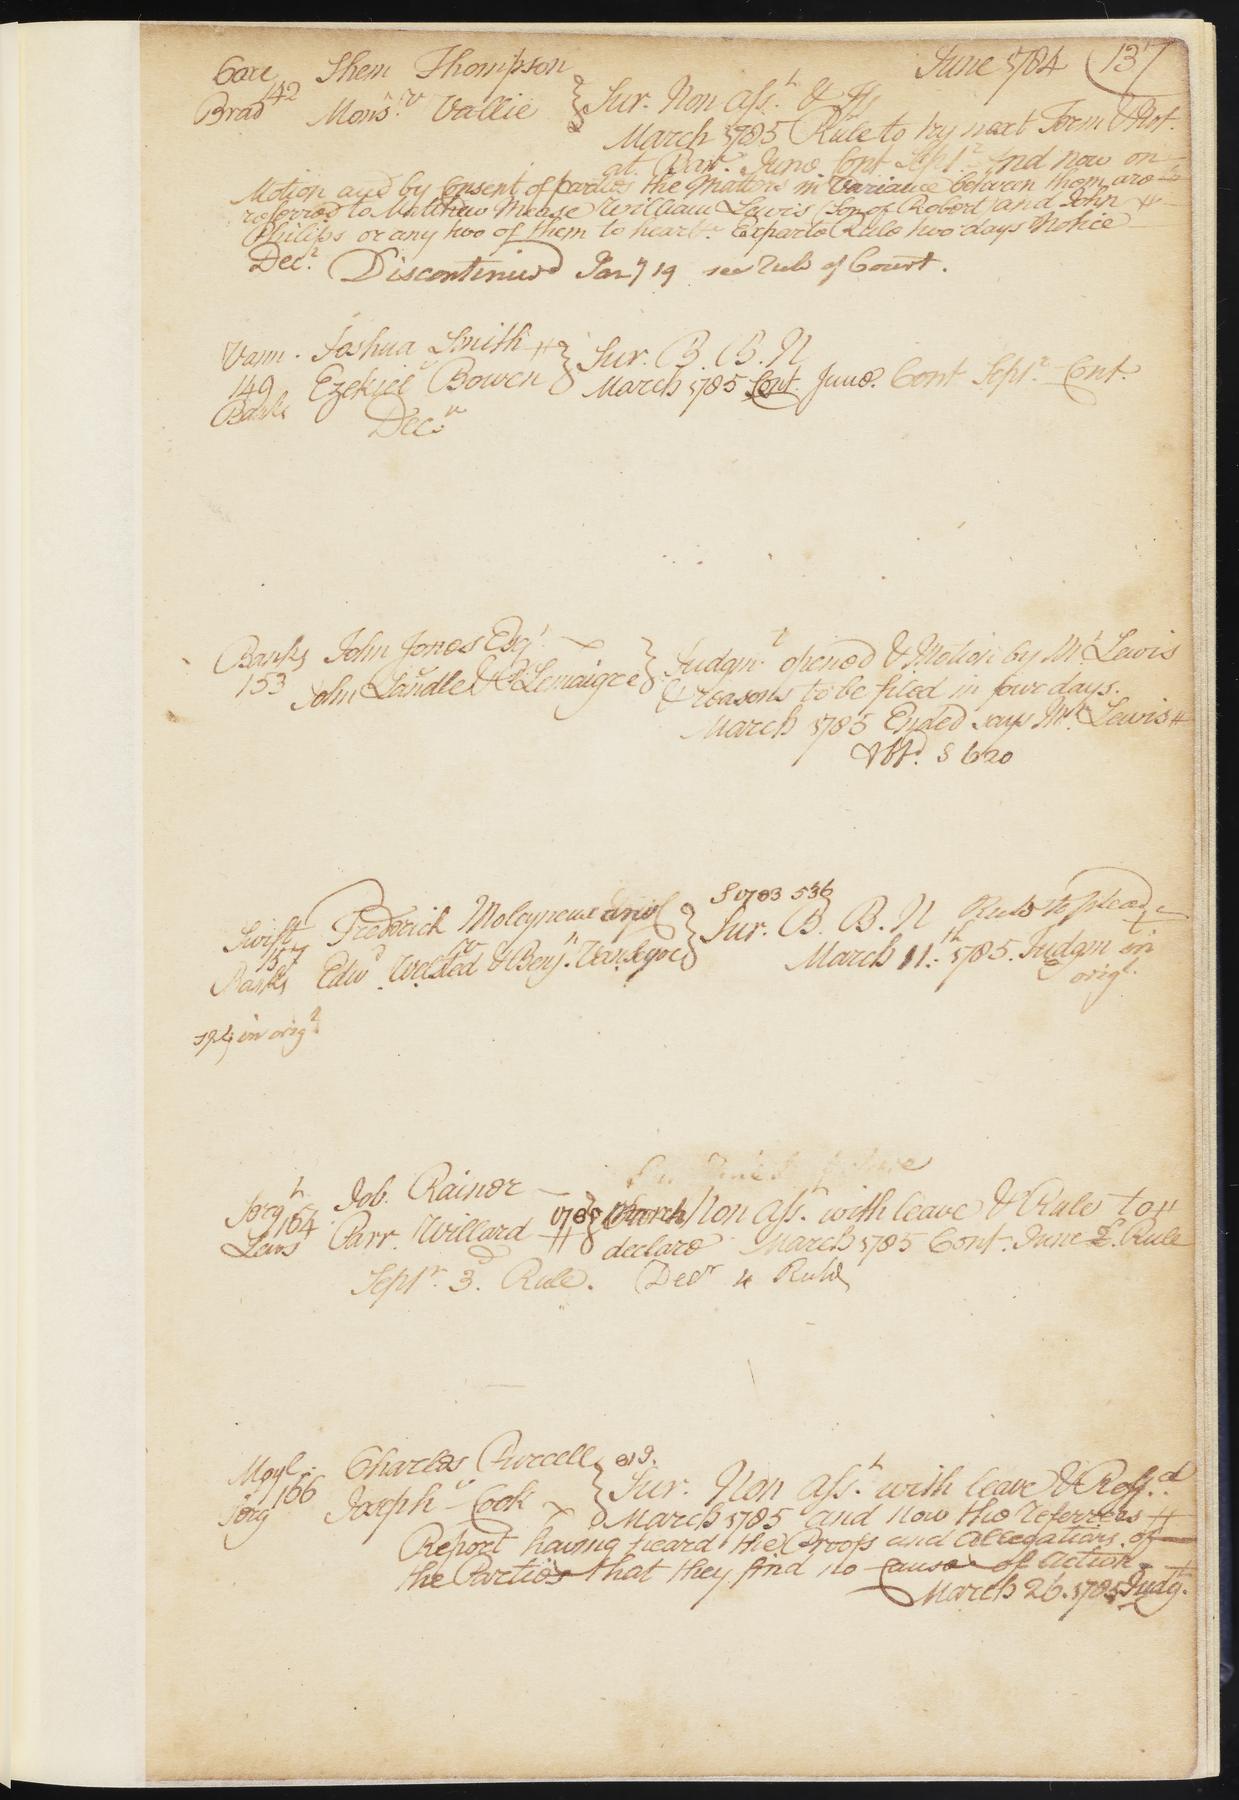 June 1784 (137
Care Shem Thompson
142
Brad Mons.r v Vallie } Sur. Non Ass.t & Iss
March 1785 Rule to try next Term & Not.
at Barr. June Cont. Sept.r And now on
Motion and by Consent of parties the Matters in Variance between them are
referred to Matthew Mease William Lewis Son of Robert and John
Philips or any two of them to hear &c. Exparte Rule two days Notice
Dec.r Discontinued Jan.y 19 see Rule of Court.
Vann. Joshua Smith } Sur. B. B. N
149 Ezekiel v Bowen March 1785 Cont. June. Cont Sept.r Cont.
Banks Dec.r
Banks John Jones Esq.r } Judgm.t opened & Motion by M.r Lewis
153 John Caudle & Lemaigre & reasons to be filed in four days.
March 1785 Ended says M.r Lewis
S 620
S 1783 536
Swift Frederick Moleyneux } Sur. B. B. N Rule to plead
157
Banks Edw.d Welsted & Benj.n March 11.th 1785. Judgm.t in
orig.l
in orig.l
Serg.t Job. Rainer
164 Non Ass.t with leave & Rule to
Lewis Parr. Willard declare March 1785 Cont. June 2.d Rule
Sept.r 3.d Rule. Dec.r 4 Rule
Moyl. Charles Purcell
166 } Sur. Non Ass.t with leave & Reff.d
Serg Joseph v Cook March 1785 and now the referrees
Report having heard the Proofs and Allegations of
the Parties that they find no Cause of action
March 26. 1785 Judg.t